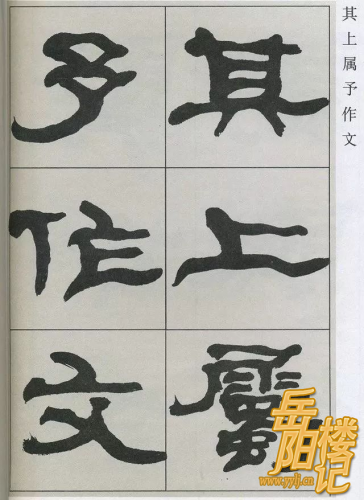 其上属予作文
其上屬
予作文
岳阳楼记
www.yylj.cn